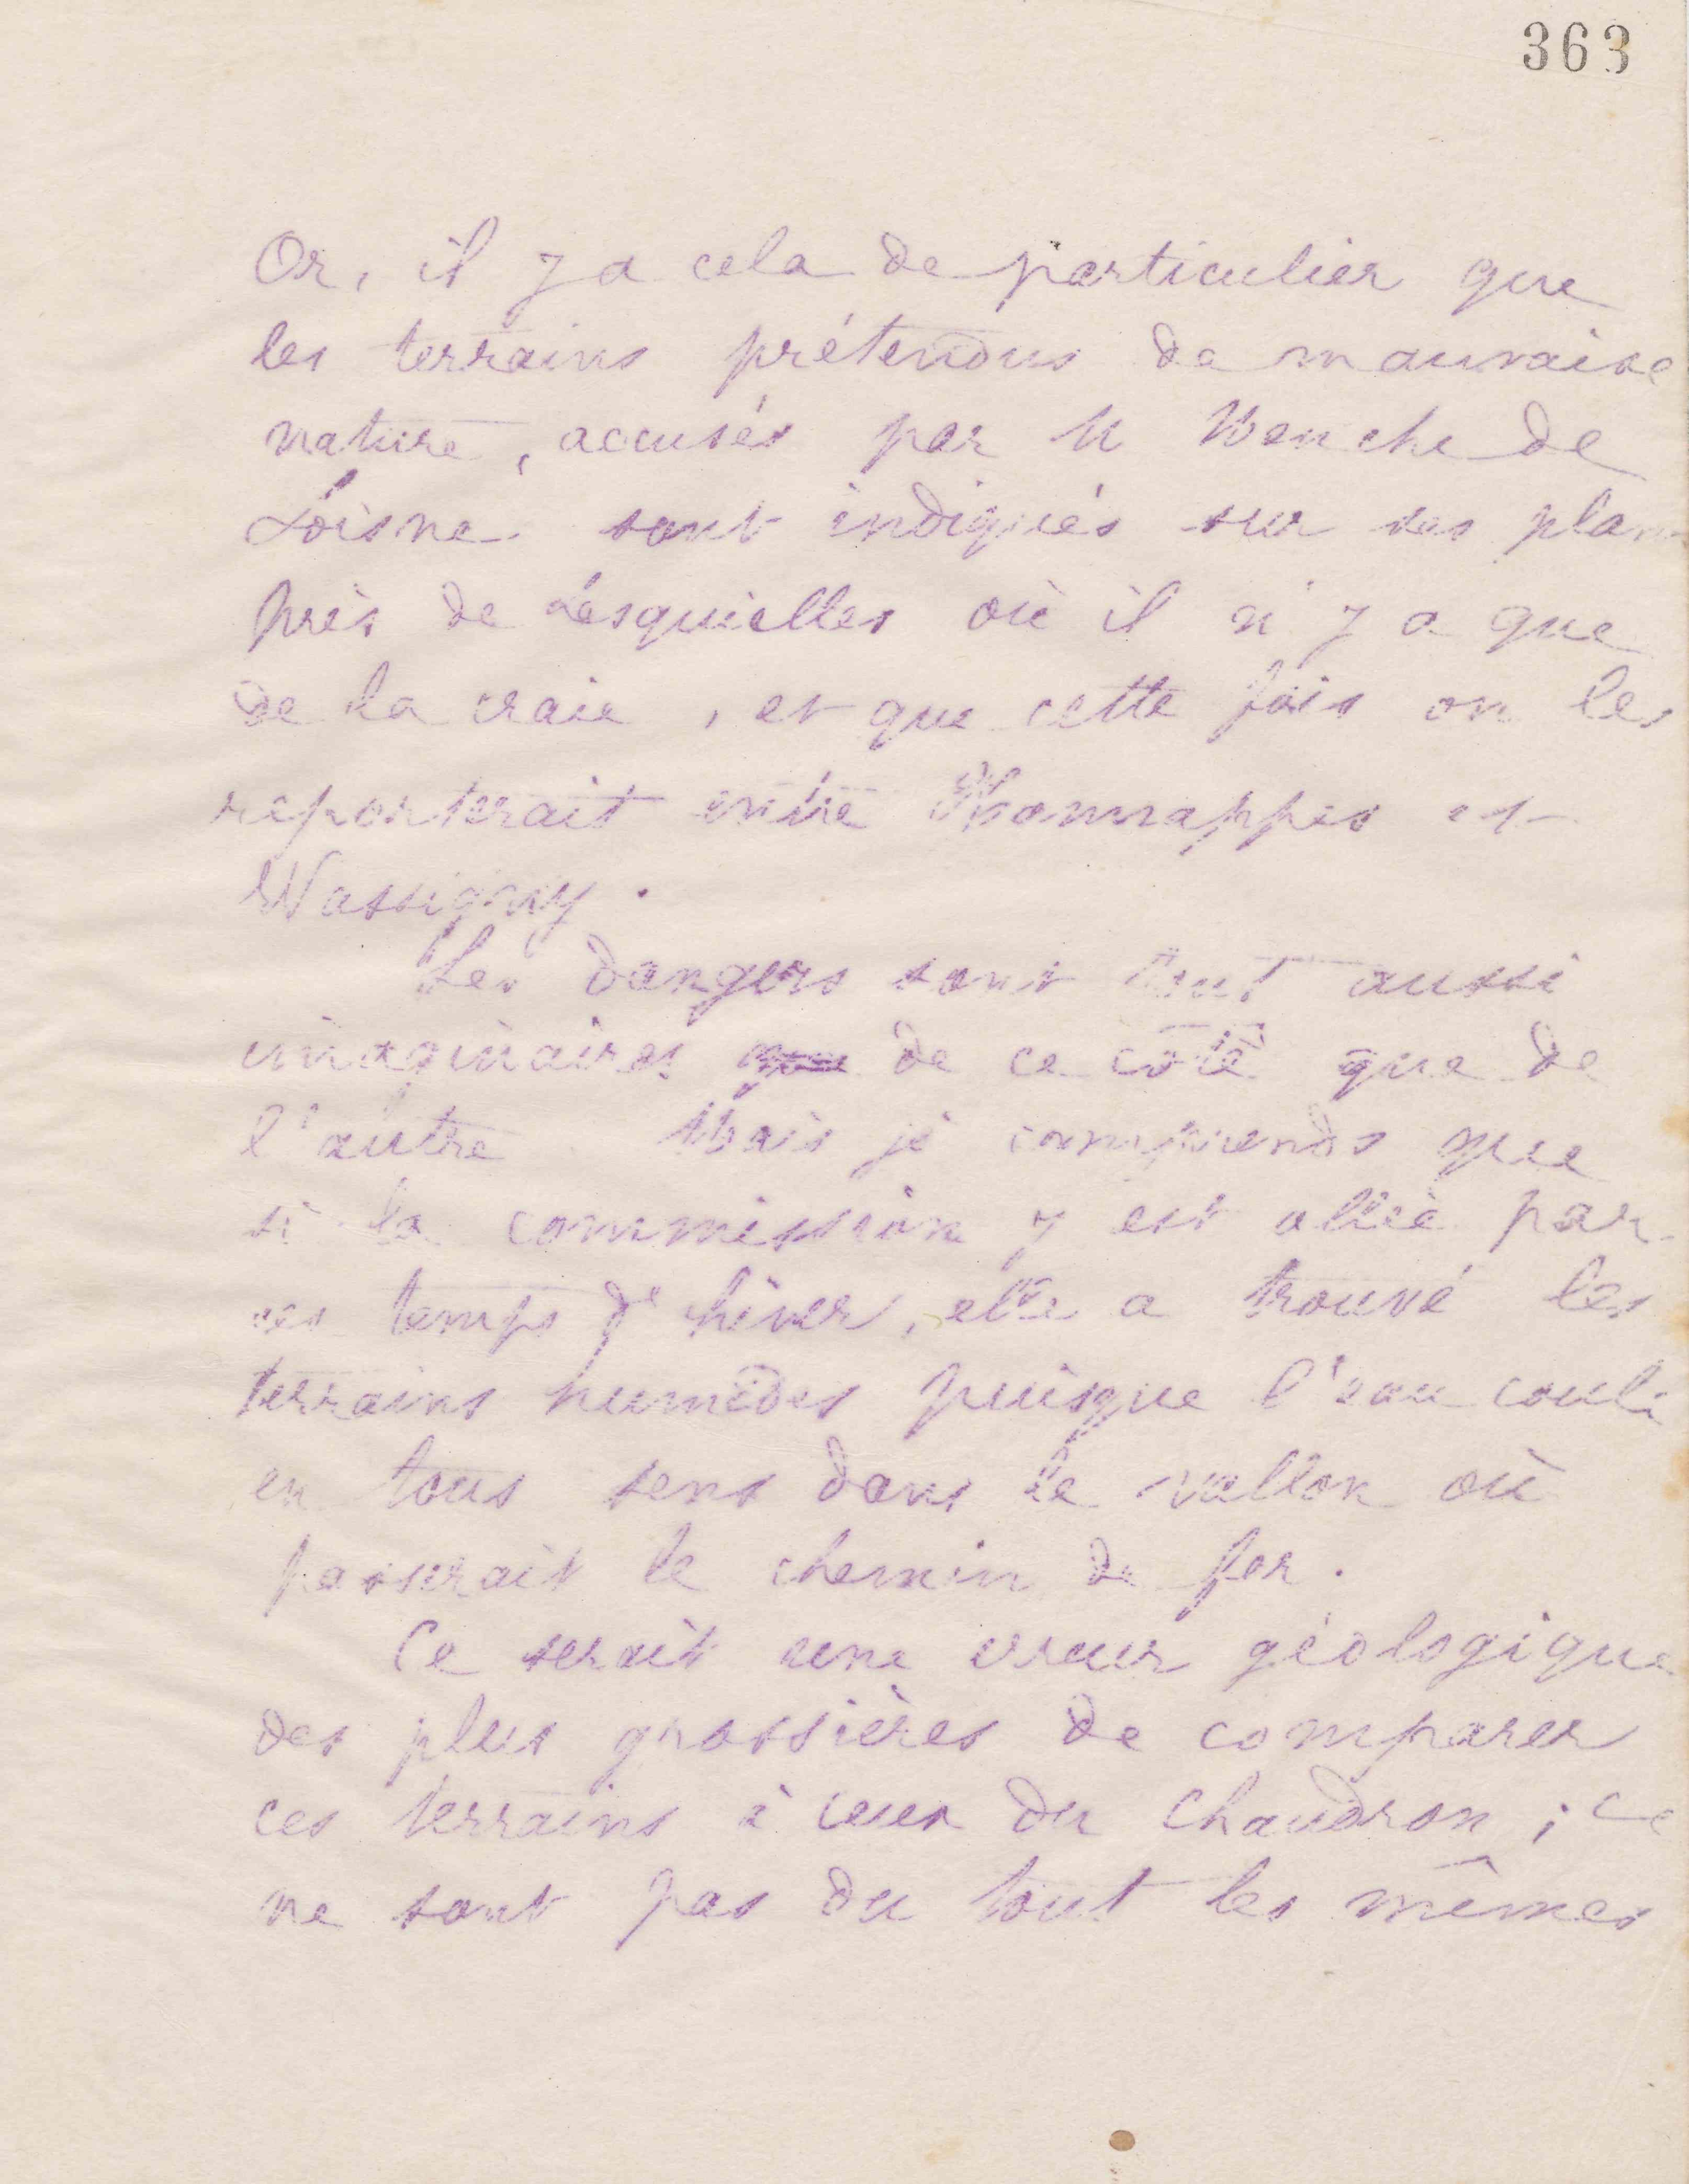 363
Or, il y a cela de particulier que
les terrains prétendus de mauvaise
nature, accusés par M Menche de
Loisne sont indiqués sur ses plans
près de Lesquielles où il n'y a que
de la craie, et que cette fois on les
reporterait entre Hannappes et
Wassigny.
Les dangers sont tout aussi
imaginaires que de ce côté que de
l'autre Mais je comprends que
si la commission y est allée par
ces temps d'hiver, elle a trouvé les
terrains humides puisque l'eau coule
en tous sens dans le vallon où
passerait le chemin de fer.
Ce serait une erreur géologique
des plus grossières de comparer
ces terrains à ceux du Chaudron ; ce
ne sont pas du tout les mêmes